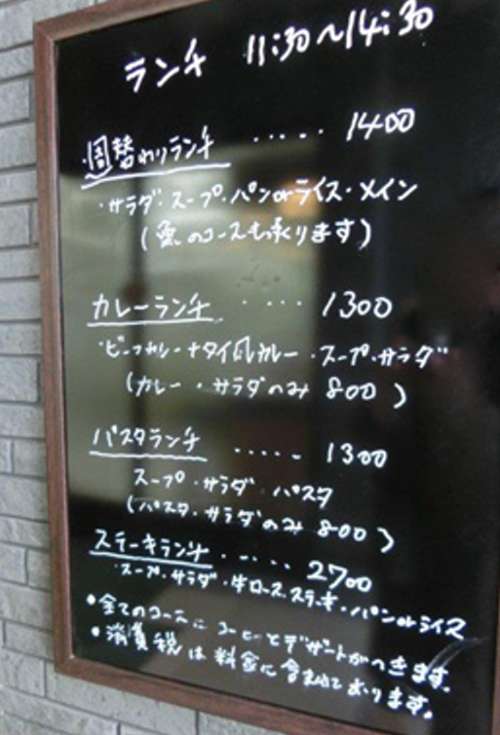 ランチ 11:30〜14:30
週替わりランチ ..... 1400
・サラダ・スープ・パンorライス・メイン
(のコースも承ります)
カレーランチ .... 1300
・ビーフカレーorタイ風カレー・スープ・サラダ
(カレー・サラダのみ 800)
パスタランチ ..... 1300
スープ・サラダ・パスタ
(パスタ・サラダのみ 800)
ステーキランチ ..... 2700
・スープ・サラダ・牛ロースステーキ・パンorライス
●全てのコースにコーヒーとデザートがつきます。
●消費税は料金に含まれております。